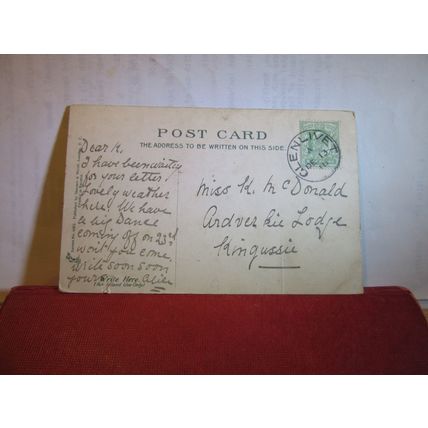 POST CARD
THE ADDRESS TO BE WRITTEN ON THIS SIDE.
GLENLIVET
DE 13
Dear K.
I have been waiting
for your letter.
Lovely weather
here. We have
a big Dance
coming off on 23rd
won't you come.
Write soon soon
yours
Write Here.
(For Inland Use Only)
Miss K. McDonald
Ardverikie Lodge
Kingussie